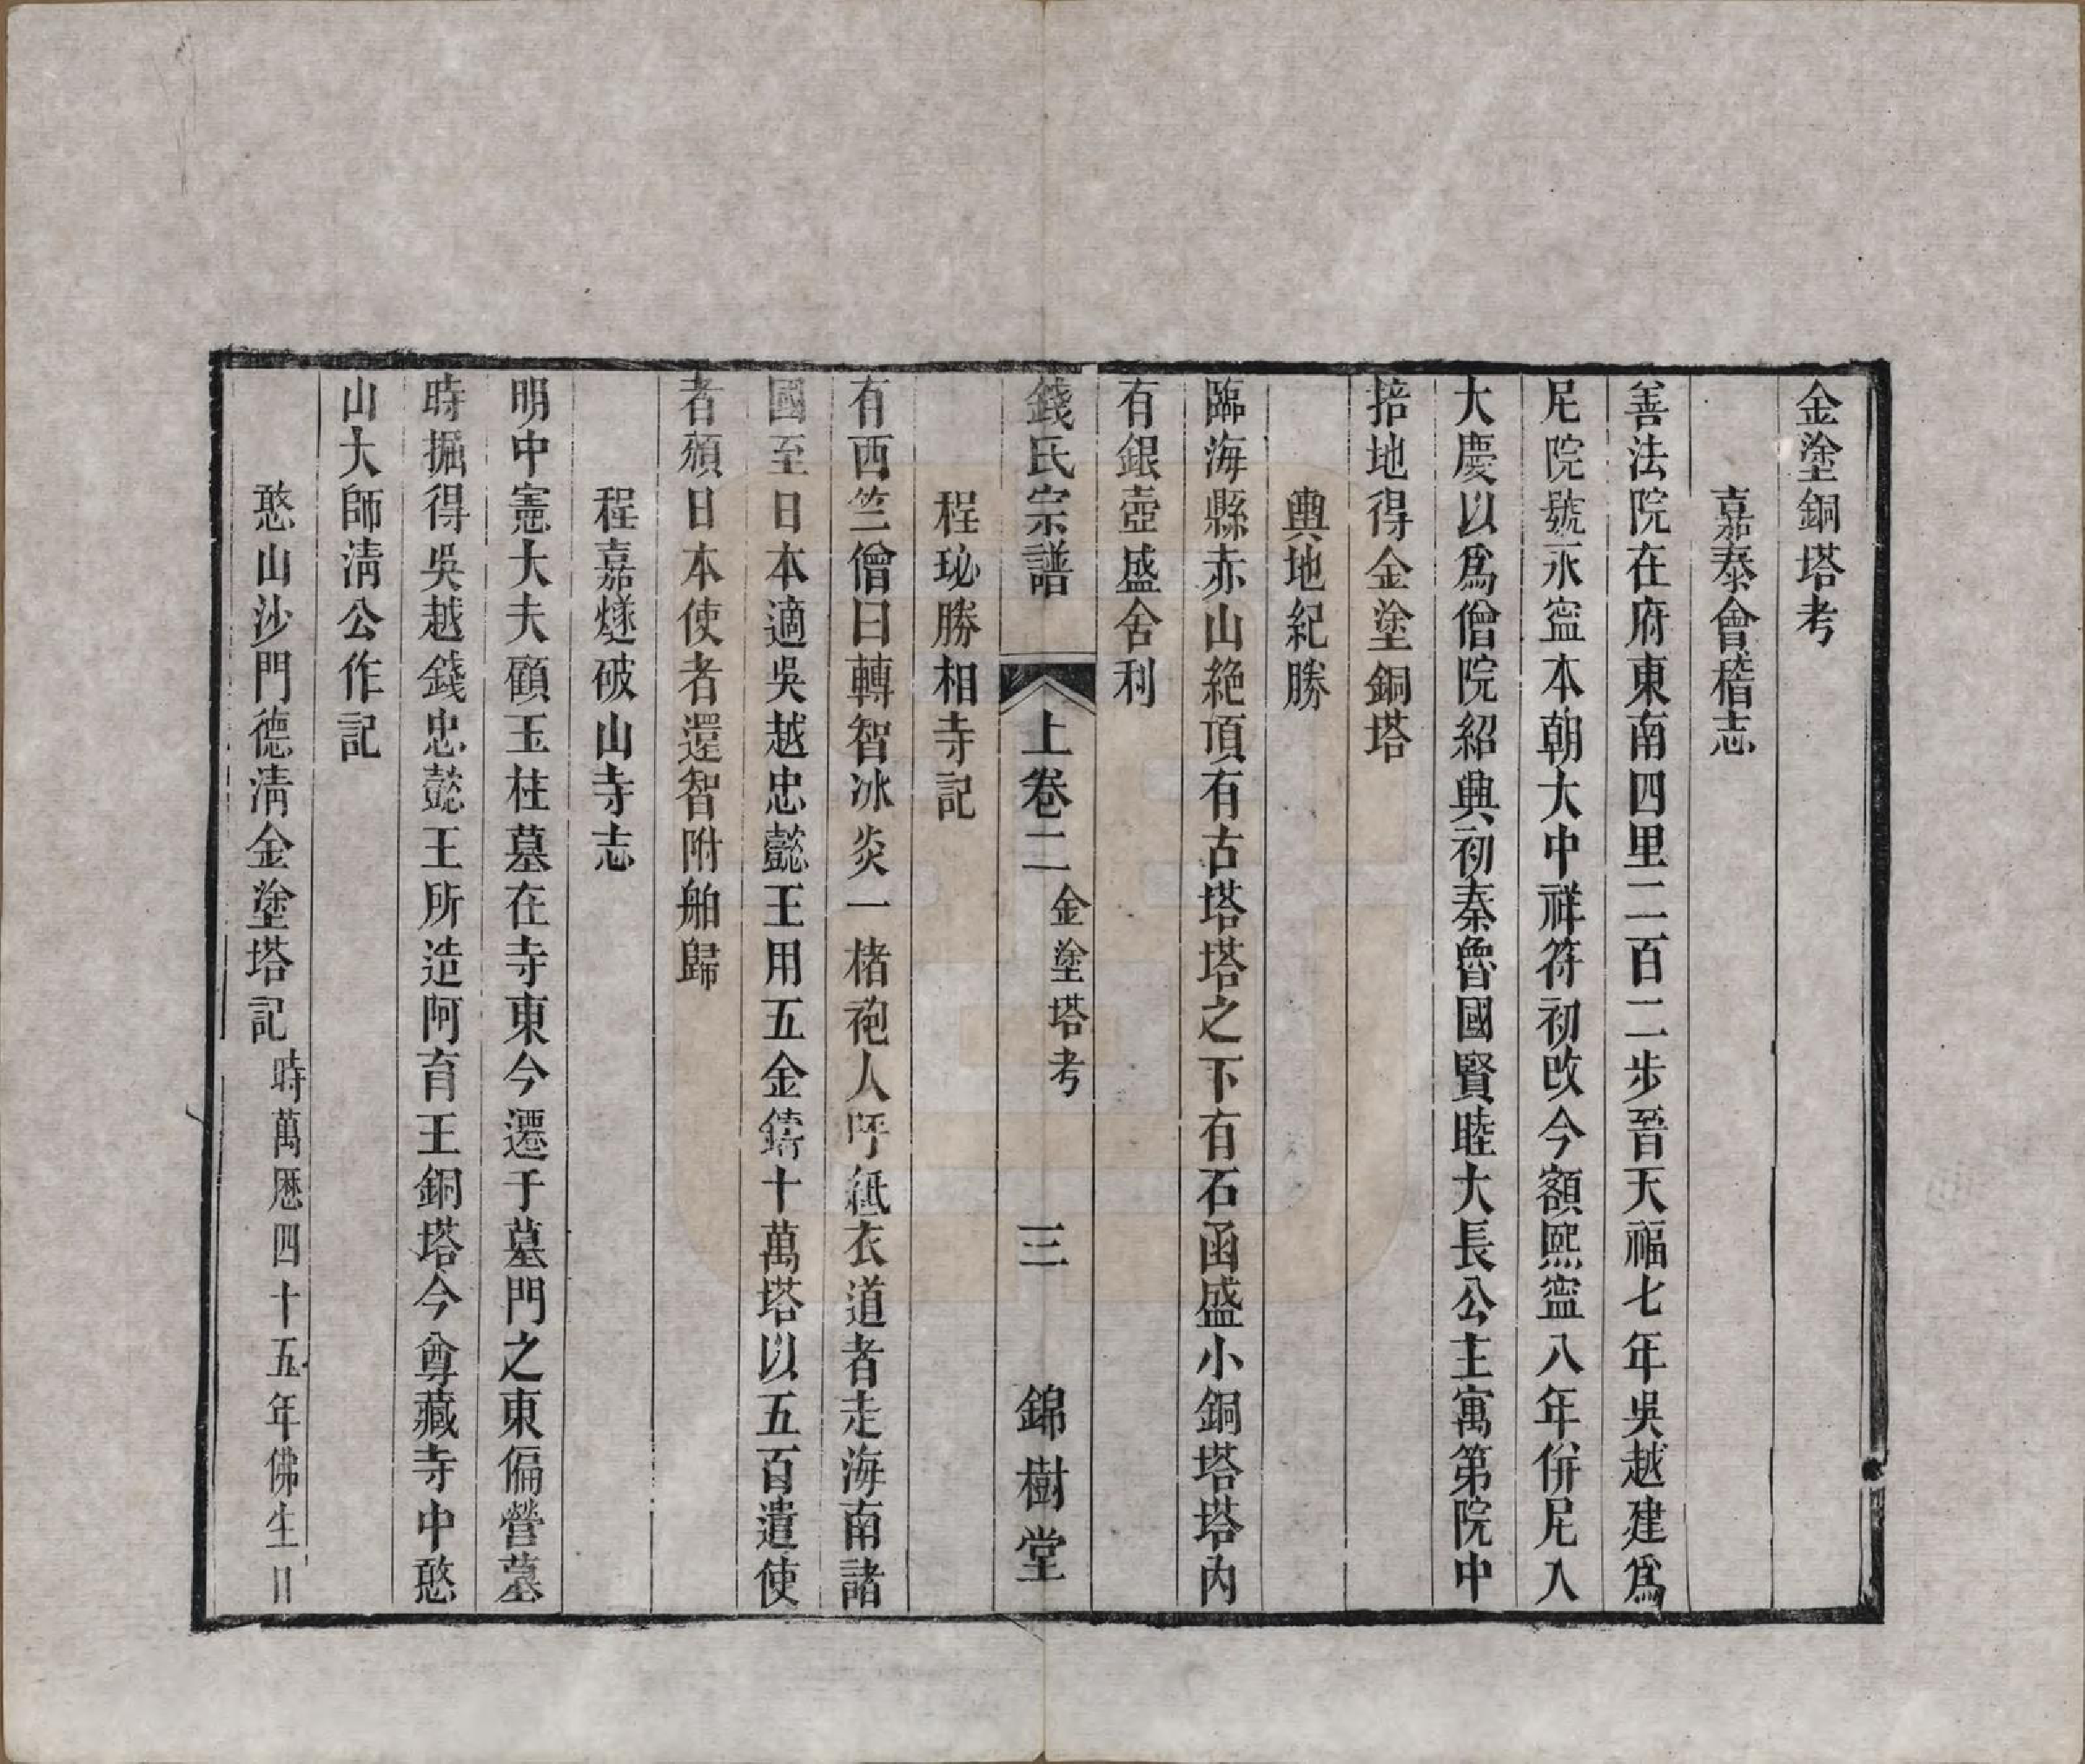 金塗銅塔考
嘉泰會稽志
善法院在府東南四里二百二步晉天福七年吳越建爲
尼院號永寍本朝大中祥符初改今額熙寍八年併尼入
大慶以爲僧院紹興初秦魯國賢睦大長公主寓第院中
掊地得金塗銅塔
輿地紀勝
臨海縣赤山絶頂有古塔塔之下有石函盛小銅塔塔內
有銀壺盛舍利
錢氏宗譜
上卷二
金塗塔考
三
錦樹堂
程珌勝相寺記
有西竺僧曰轉智冰炎一楮袍人呼紙衣道者走海南諸
國至日本適吳越忠懿王用五金鑄十萬塔以五百遣使
者頒日本使者還智附舶歸
程嘉燧破山寺志
明中憲大夫顧玉柱墓在寺東今遷于墓門之東偏營墓
時掘得吳越錢忠懿王所造阿育王銅塔今尊藏寺中憨
山大師清公作記
憨山沙門德清金塗塔記
時萬厯四十五年佛生日